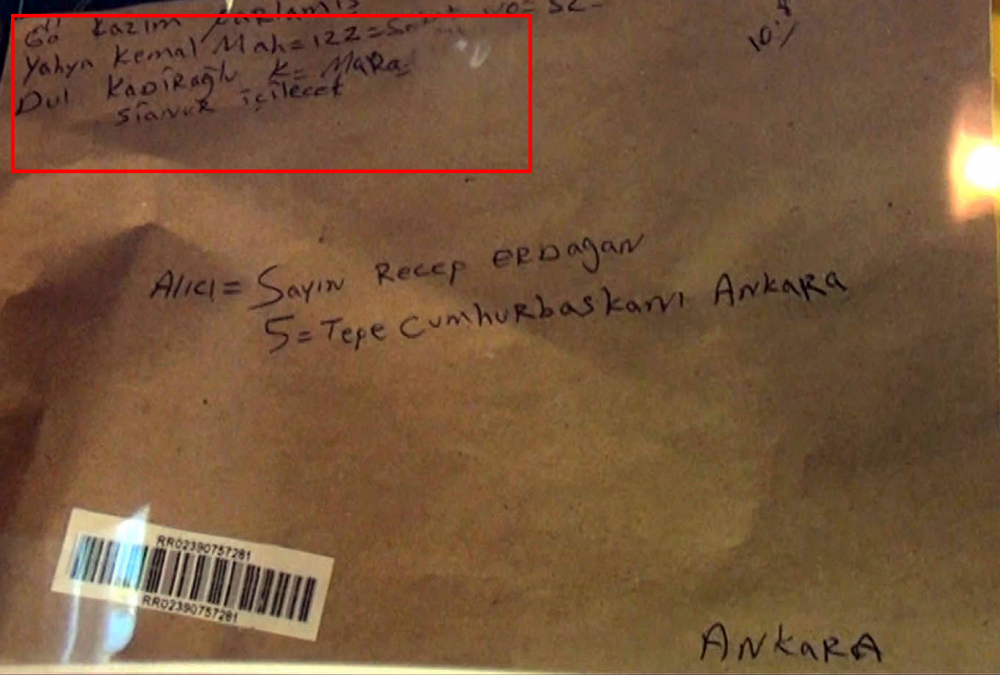 Kazım
Yahya Kemal Mah=122=
Dul Kadîrağlu K= MaRaş
Sîanur içilecek
10.8
Alıcı= Sayın Recep ERDağan
5=Tepe CumhuRbaskanı AnkaRa
RR02390757281
RR02390757281
ANkaRA